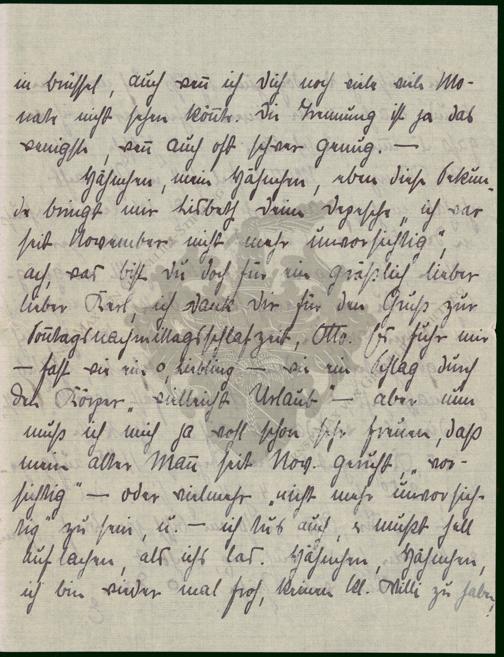 in Brüssel, auch wen̄ ich Dich noch viele viele Mo-
nate nicht sehen kön̄te. Die Trennung ist ja das
wenigste, wen̄ auch oft schwer genug. —
Hähnchen, mein Hähnchen, eben diese Sekun-
de bringt mir Lisbeth Deine Depesche „ich war
seit November nicht mehr unvorsichtig“,
ach, was bist Du doch für ein gräßlich lieber
lieber Kerl, ich dank Dir für den Gruß zur
Sonntagsnachmittagsschlafzeit, Otto. Es fuhr mir
— fast wie ein o, Liebling — wie ein Schlag durch
den Körper „vielleicht Urlaub“ — aber nun
muß ich mich ja wohl schon sehr freuen, daß
mein alter Man̄ seit Nov. geruht, „vor-
sichtig“ — oder vielmehr „nicht mehr unvorsich-
tig“ zu sein, u. — ich tus auch, mußt hell
auflachen, als ichs las. Hähnchen, Hähnchen,
ich bin wieder mal froh, keinen kl. Willi zu haben,